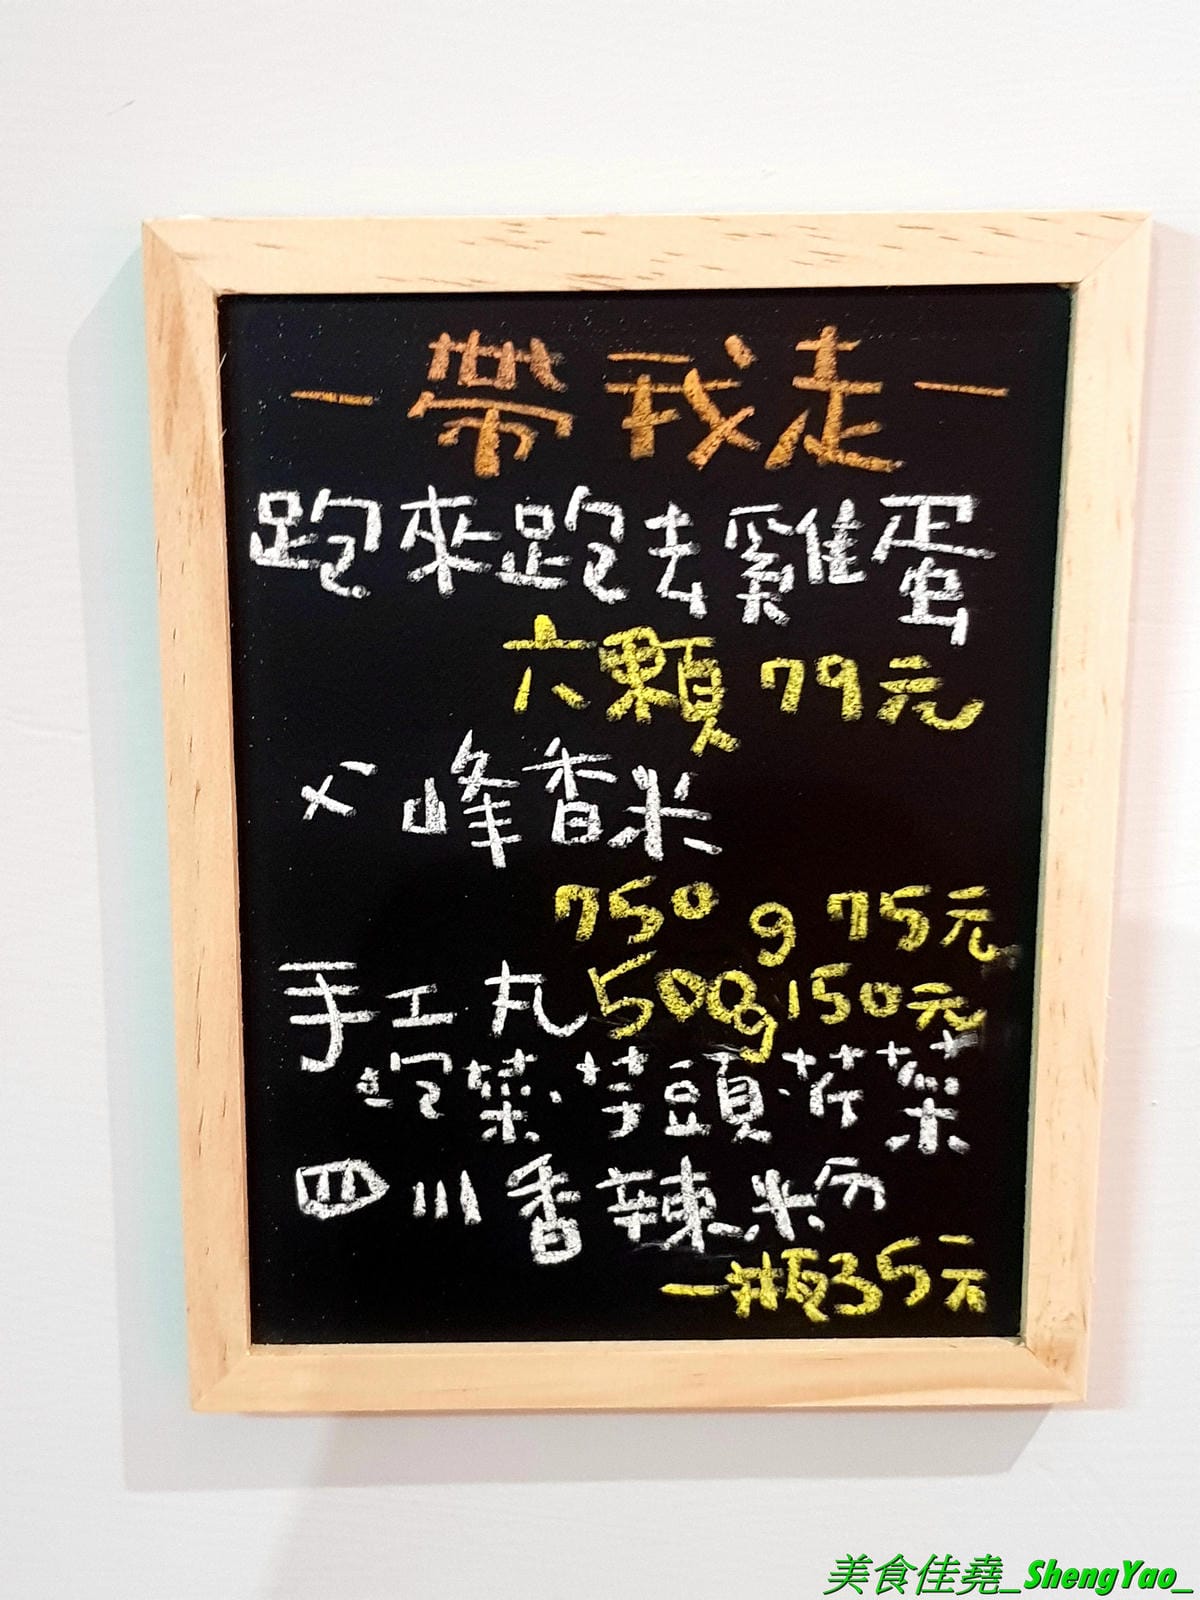 －帶我走－
跑來跑去雞蛋
六顆 79元
ㄨˋ峰香米
750g 75元
手工丸 500g 150元
泡菜·芋頭·芹菜
四川香辣粉
一瓶35元
美食佳堯_ShengYao_